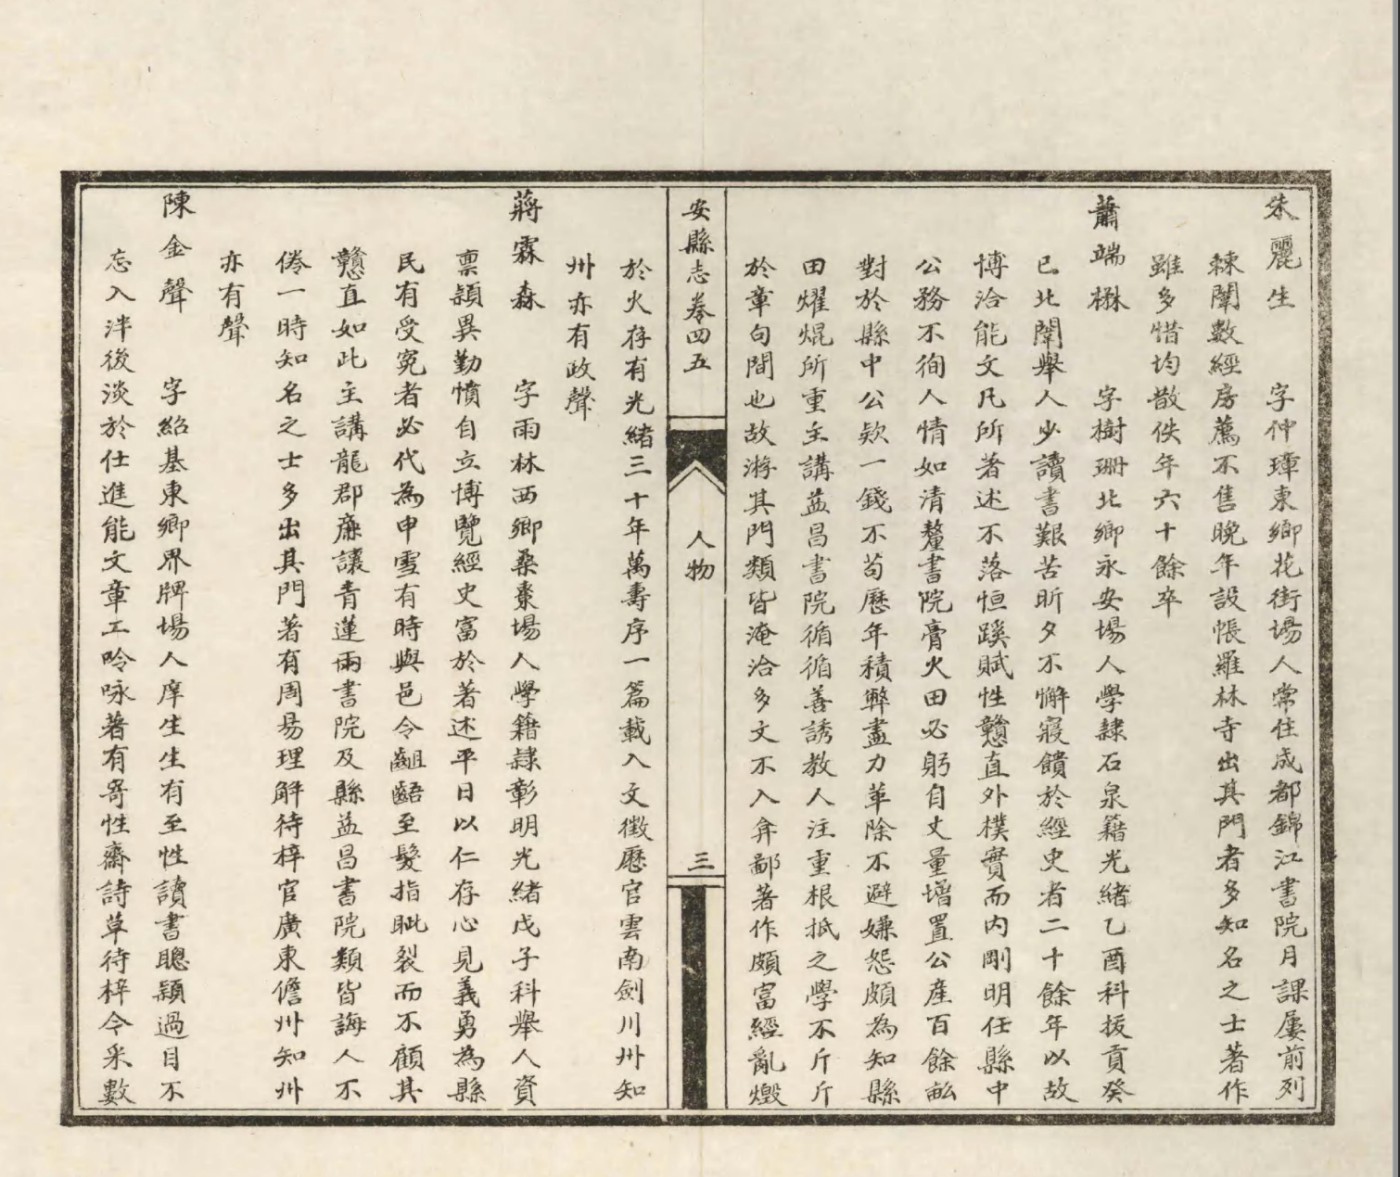 朱麗生　字仲璋東鄉花街場人常住成都錦江書院月課屢前列
棘闈數經房薦不售晚年設帳羅林寺出其門者多知名之士著作
雖多惜均散佚年六十餘卒
蕭端楙　字樹珊北鄉永安場人學隸石泉籍光緒乙酉科拔貢癸
巳北闈舉人少讀書艱苦昕夕不懈寢饋於經史者二十餘年以故
博洽能文凡所著述不落恒蹊賦性戇直外樸實而内剛明任縣中
公務不徇人情如清釐書院膏火田必躬自丈量增置公產百餘畝
對於縣中公欵一錢不苟歷年積弊盡力革除不避嫌怨頗為知縣
田燿焜所重主講益昌書院循循善誘教人注重根抵之學不斤斤
於章句間也故游其門類皆淹洽多文不入弇鄙著作頗富經亂燬
安縣志卷四五
人物
三
於火存有光緒三十年萬壽序一篇載入文徵歷官雲南劍川州知
州亦有政聲
蔣霖森　字雨林西鄉桑棗場人學籍隸彰明光緒戊子科舉人資
禀穎異勤憤自立博覽經史富於著述平日以仁存心見義勇為縣
民有受寃者必代為申雪有時與邑令齟齬至髮指眦裂而不顧其
戇直如此主講龍郡廉讓青蓮兩書院及縣益昌書院類皆誨人不
倦一時知名之士多出其門著有周易理解待梓官廣東儋州知州
亦有聲
陳金聲　字紹基東鄉界牌場人庠生生有至性讀書聰穎過目不
忘入泮後淡於仕進能文章工吟咏著有寄性齋詩草待梓今采數